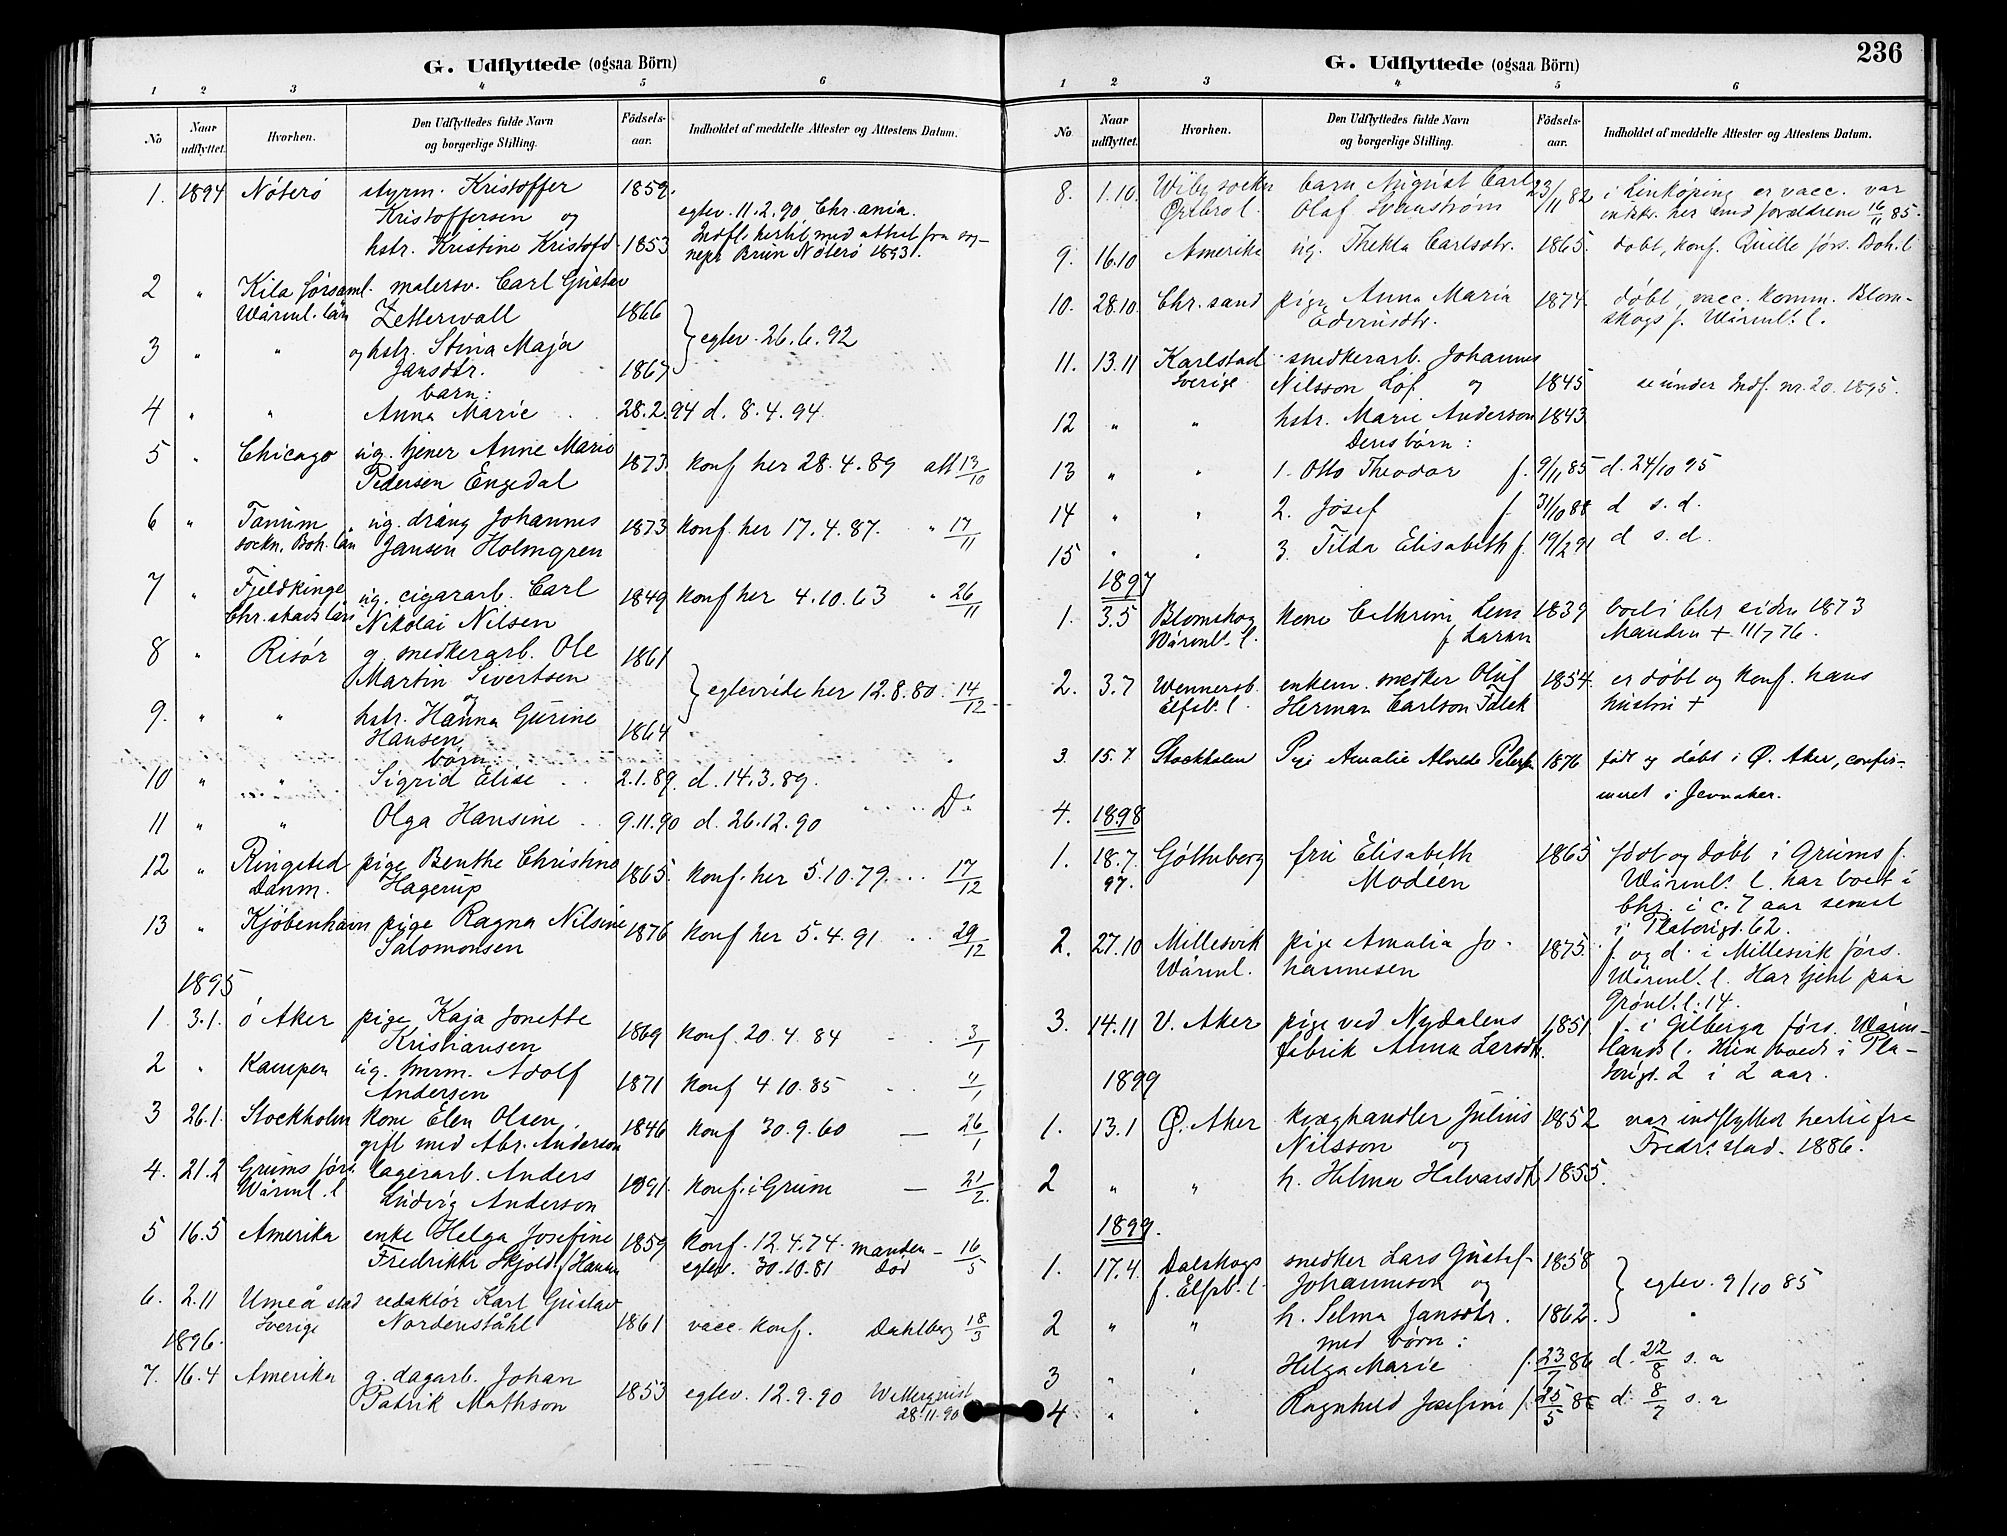 G. Udflyttede (ogsaa Börn)
1 2 3 4 5 6
No Naar udflyttet. Hvorhen. Den Udflyttedes fulde Navn og borgerlige Stilling. Födsels-aar. Indholdet af meddelte Attester og Attestens Datum.
1. 1894 Nöterö styrm. Kristoffer 1859.
Kristoffersen og egtev. 11.2.90 Chr.ania.
hstr. Kristine Kristofd. 1853 Indfl. hertil med attest fra sog-
nepr Brun Nöterö 1893.
2 " Kila församl. malersv. Carl Gustav
Wärml. län Zetterwall 1866
3 " " og hstr. Stina Maja egtev. 26.6.92
Jansdtr. 1867
barn:
4 " " Anna Marie 28.2.94 d. 8.4.94.
5 " Chicago ug. tjener Anne Marie
Pedersen Engedal 1873. Konf her 28.4.89 att 13/10
6 " Tanum ug. dräng Johannes 1873 Konf. her 17.4.87. " 17/11
sockn. Boh. län Jansen Holmgren
7 " Fjeldkinge ug. cigararb. Carl 1849 Konf her 4.10.63 " 26/11
Chr.stads län Nikolai Nilsen
8 " Risör g. snedkerarb. Ole 1861
Martin Sivertsen
og egteviede her 12.8.80. 14/12
9. " " hstr. Hanna Gurine
Hansen 1864
börn:
10 " " Sigrid Elise 2.1.89. d. 14.3.89.
11 " " Olga Hansine 9.11.90 d. 26.12.90 D:
12 " Ringsted pige Benthe Christine 1865. Konf. her 5.10.79. 17/12
Danm. Hagerup
13 " Kjöbenhavn pige Ragna Nilsine 1876 Konf her 5.4.91 29/12
Salomonsen
1895
1 3.1. Ö Aker pige Kaja Jonette 1869 Konf. 20.4.84 3/1
Kristiansen
2 " Kampen ug. Adolf 1871 Konf 4 10.85 "/1
Andersen
3 26.1. Stockholm Kone Elen Olsen, 1846 Konf 30.9.60 — 26/1
gift med Abr. Anderson
4. 21.2 Grums förs. lagerarb. Anders 1891 Konf. i Grum — 21/2.
Wärml. l Ludvig Anderson
5 16.5 Amerika enke Helga Josefine 1859 Konf. 12.4.74. manden - 16/5
Fredrikke Skjold f Hansen egtev. 30.10.81 död
6. 2.11 Umeå stad redaktör Karl Gustav
Sverige Nordenståhl 1861 vacc. Konf. Dahlberg 18/3
1896.
7. 16.4 Amerika g. dagarb. Johan
Patrik Mathson 1853 egtev. 12.9.90
28.11.90
236
G. Udflyttede (ogsaa Börn)
1 2 3 4 5 6
No. Naar udflyttet. Hvorhen. Den Udflyttedes fulde Navn og borgerlige Stilling. Födsels-aar. Indholdet af meddelte Attester og Attestens Datum.
8. 1.10. Wiby sockn barn August Carl 23/11 82 i Linköping er vacc. var
Örebro l. Olaf Svenström her med forældrene 16/11 85.
9. 16.10 Amerika ug. Thekla Carlsdtr. 1865. dobt, konf. Quille förs. Boh. l
10. 28.10 Chr.sand pige Anna Maria 1874. döbt, vacc. komm. Blom-
skogs f. Wärml. l.
11. 13.11 Karlstad snedkerarb. Johannes
Sverige Nilsson Löf og 1845 se under Indf. nr. 20. 1895.
12 " " hstr. Marie Anderson 1843
Deres börn:
13 " " 1. Otto Theodor f. 9/11 85 d. 24/10 95
14 " " 2. Josef f 31/10 88 d s. d.
15 " " 3. Tilda Elisabeth f. 19/2 91 d s. d.
1897
1. 3.5 Blomskog kone Cathrine 1839 boet i Chr siden 1873
Wärml. l. f Larsen Manden + 11/7 76.
2. 3.7 Wennersb. enkem. snedker Oluf 1854. er döbt og konf. hans
Elfsb. l. Herman Carlson Falck hustru +
3. 15.7 Stockholm Pige Amalie 1876 född og döbt i Ø. Aker, confir-
meret i Jevnaker.
4. 1898
1. 18.7. Götheberg fru Elisabeth 1865 födt og döbt i Grums f.
97. Modéen Wärml. l. har boet i
Chr. i c. 7 aar senest
i 62.
2. 27.10 Millesvik pige Amalia Jo- 1875. f. og d. i Millesvik förs.
Wärml. hannesen Wärml. l. Har tjent paa
Grönl. l. 14.
3. 14.11 V. Aker pige ved Nydalens 1851. f. i Gilberga förs. Wärm-
fabrik Anna Larsdtr. lands l. Hun boede i
2 i 2 aar.
1899
1. 13.1 Ø. Aker kvæghandler Julius 1852 var indflyttet hertil fra
Nilsson og Fredr.stad. 1886.
2 " " h. Hilma Halvarsdtr 1855.
1899.
1. 17.4. Dalskogs snedker Lars Gustaf 1858
f. Elfsb. l. Johanneson og egtev. 9/10 85
2 " " h. Selma Jansdtr. 1862.
med börn:
3 " " Helga Marie f. 23/7 86 d. 22/8 s. a
4 " " Ragnhild Josefine f. 25/5 d. 8/7 s. a